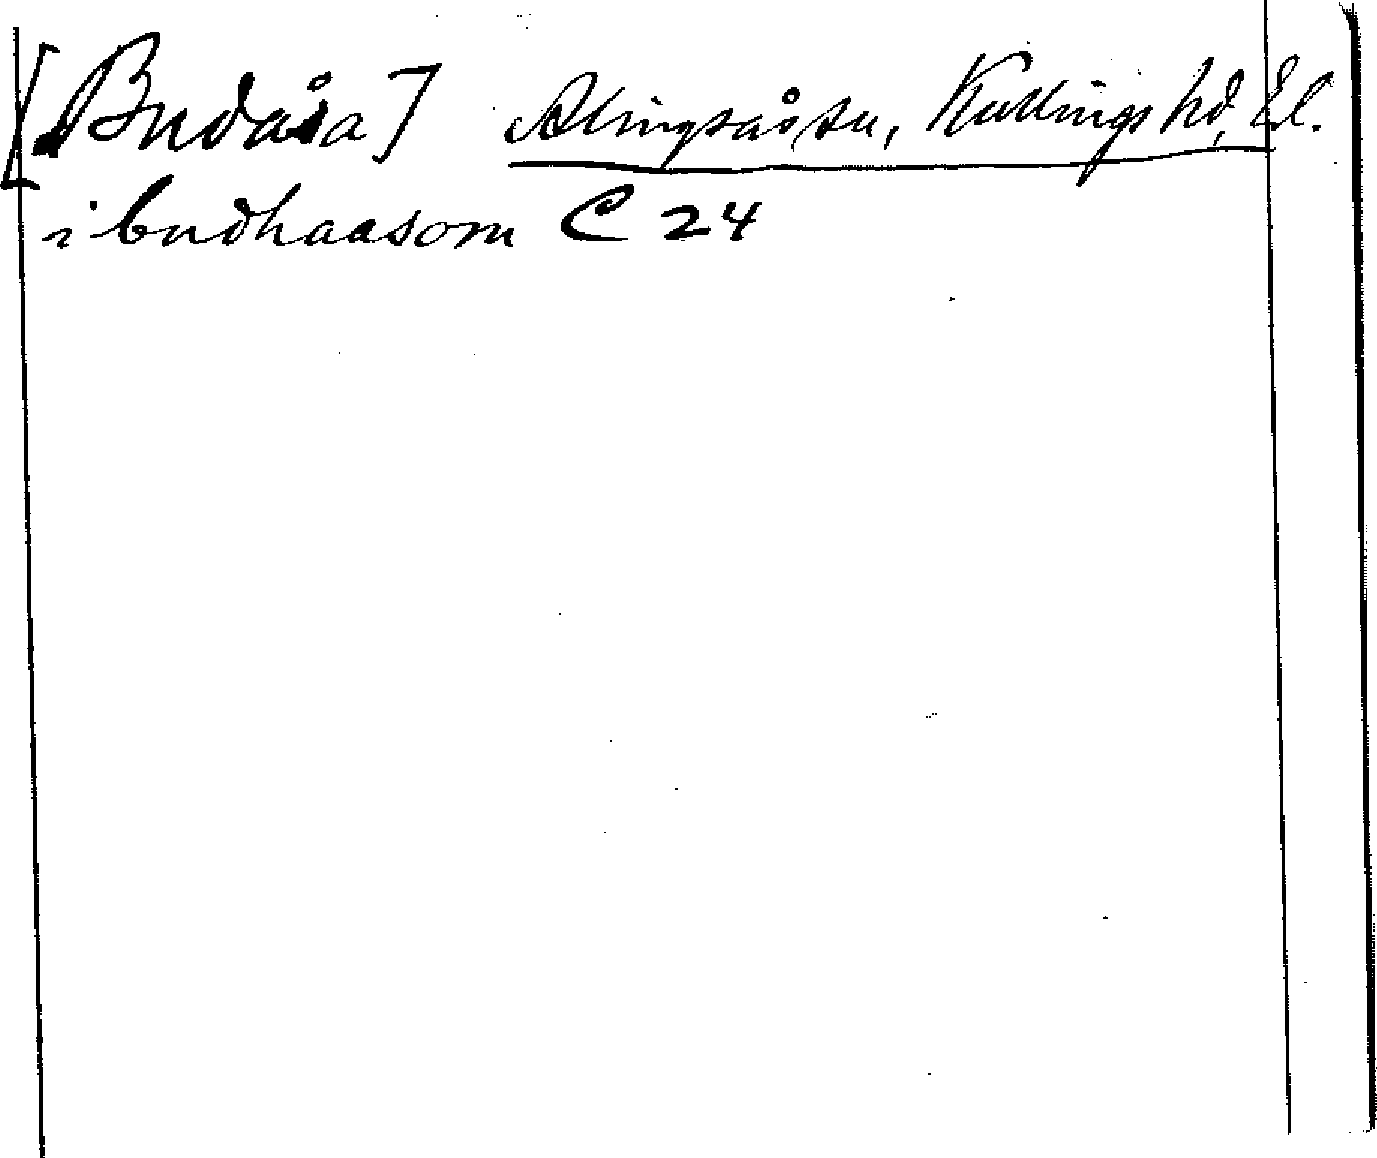 [Budåsa] Alingsås sn, Kullings hd, Äl.
i budhaasom C 24